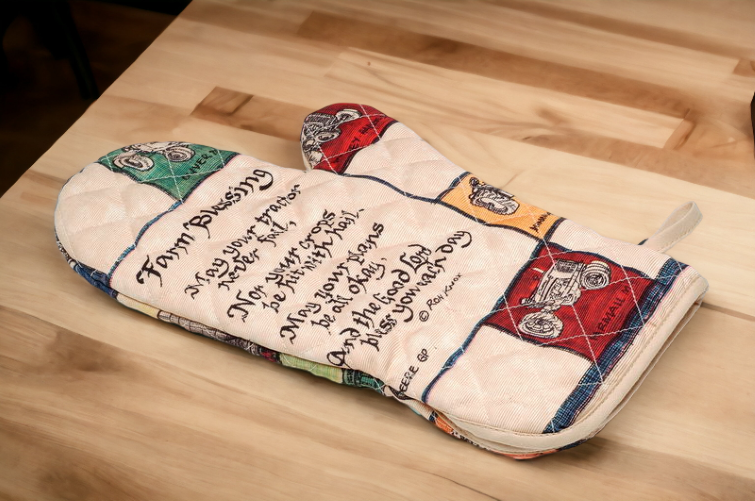 Farm Blessing
May your tractor
never fail,
Nor your crops
be hit with hail.
May your plans
be all okay,
And the Good Lord
bless you each day
© Ron Knox
DEERE GP